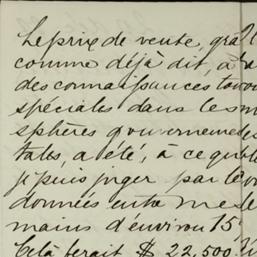 Le prix de vente, grâ
comme déjà dit, à
des connaissances tou
spéciales dans les
sphères gouverneme
tales, a été, à ce que
je puis juger par le
données entre mes
mains d'environ 15
Celà ferait $ 22,500.